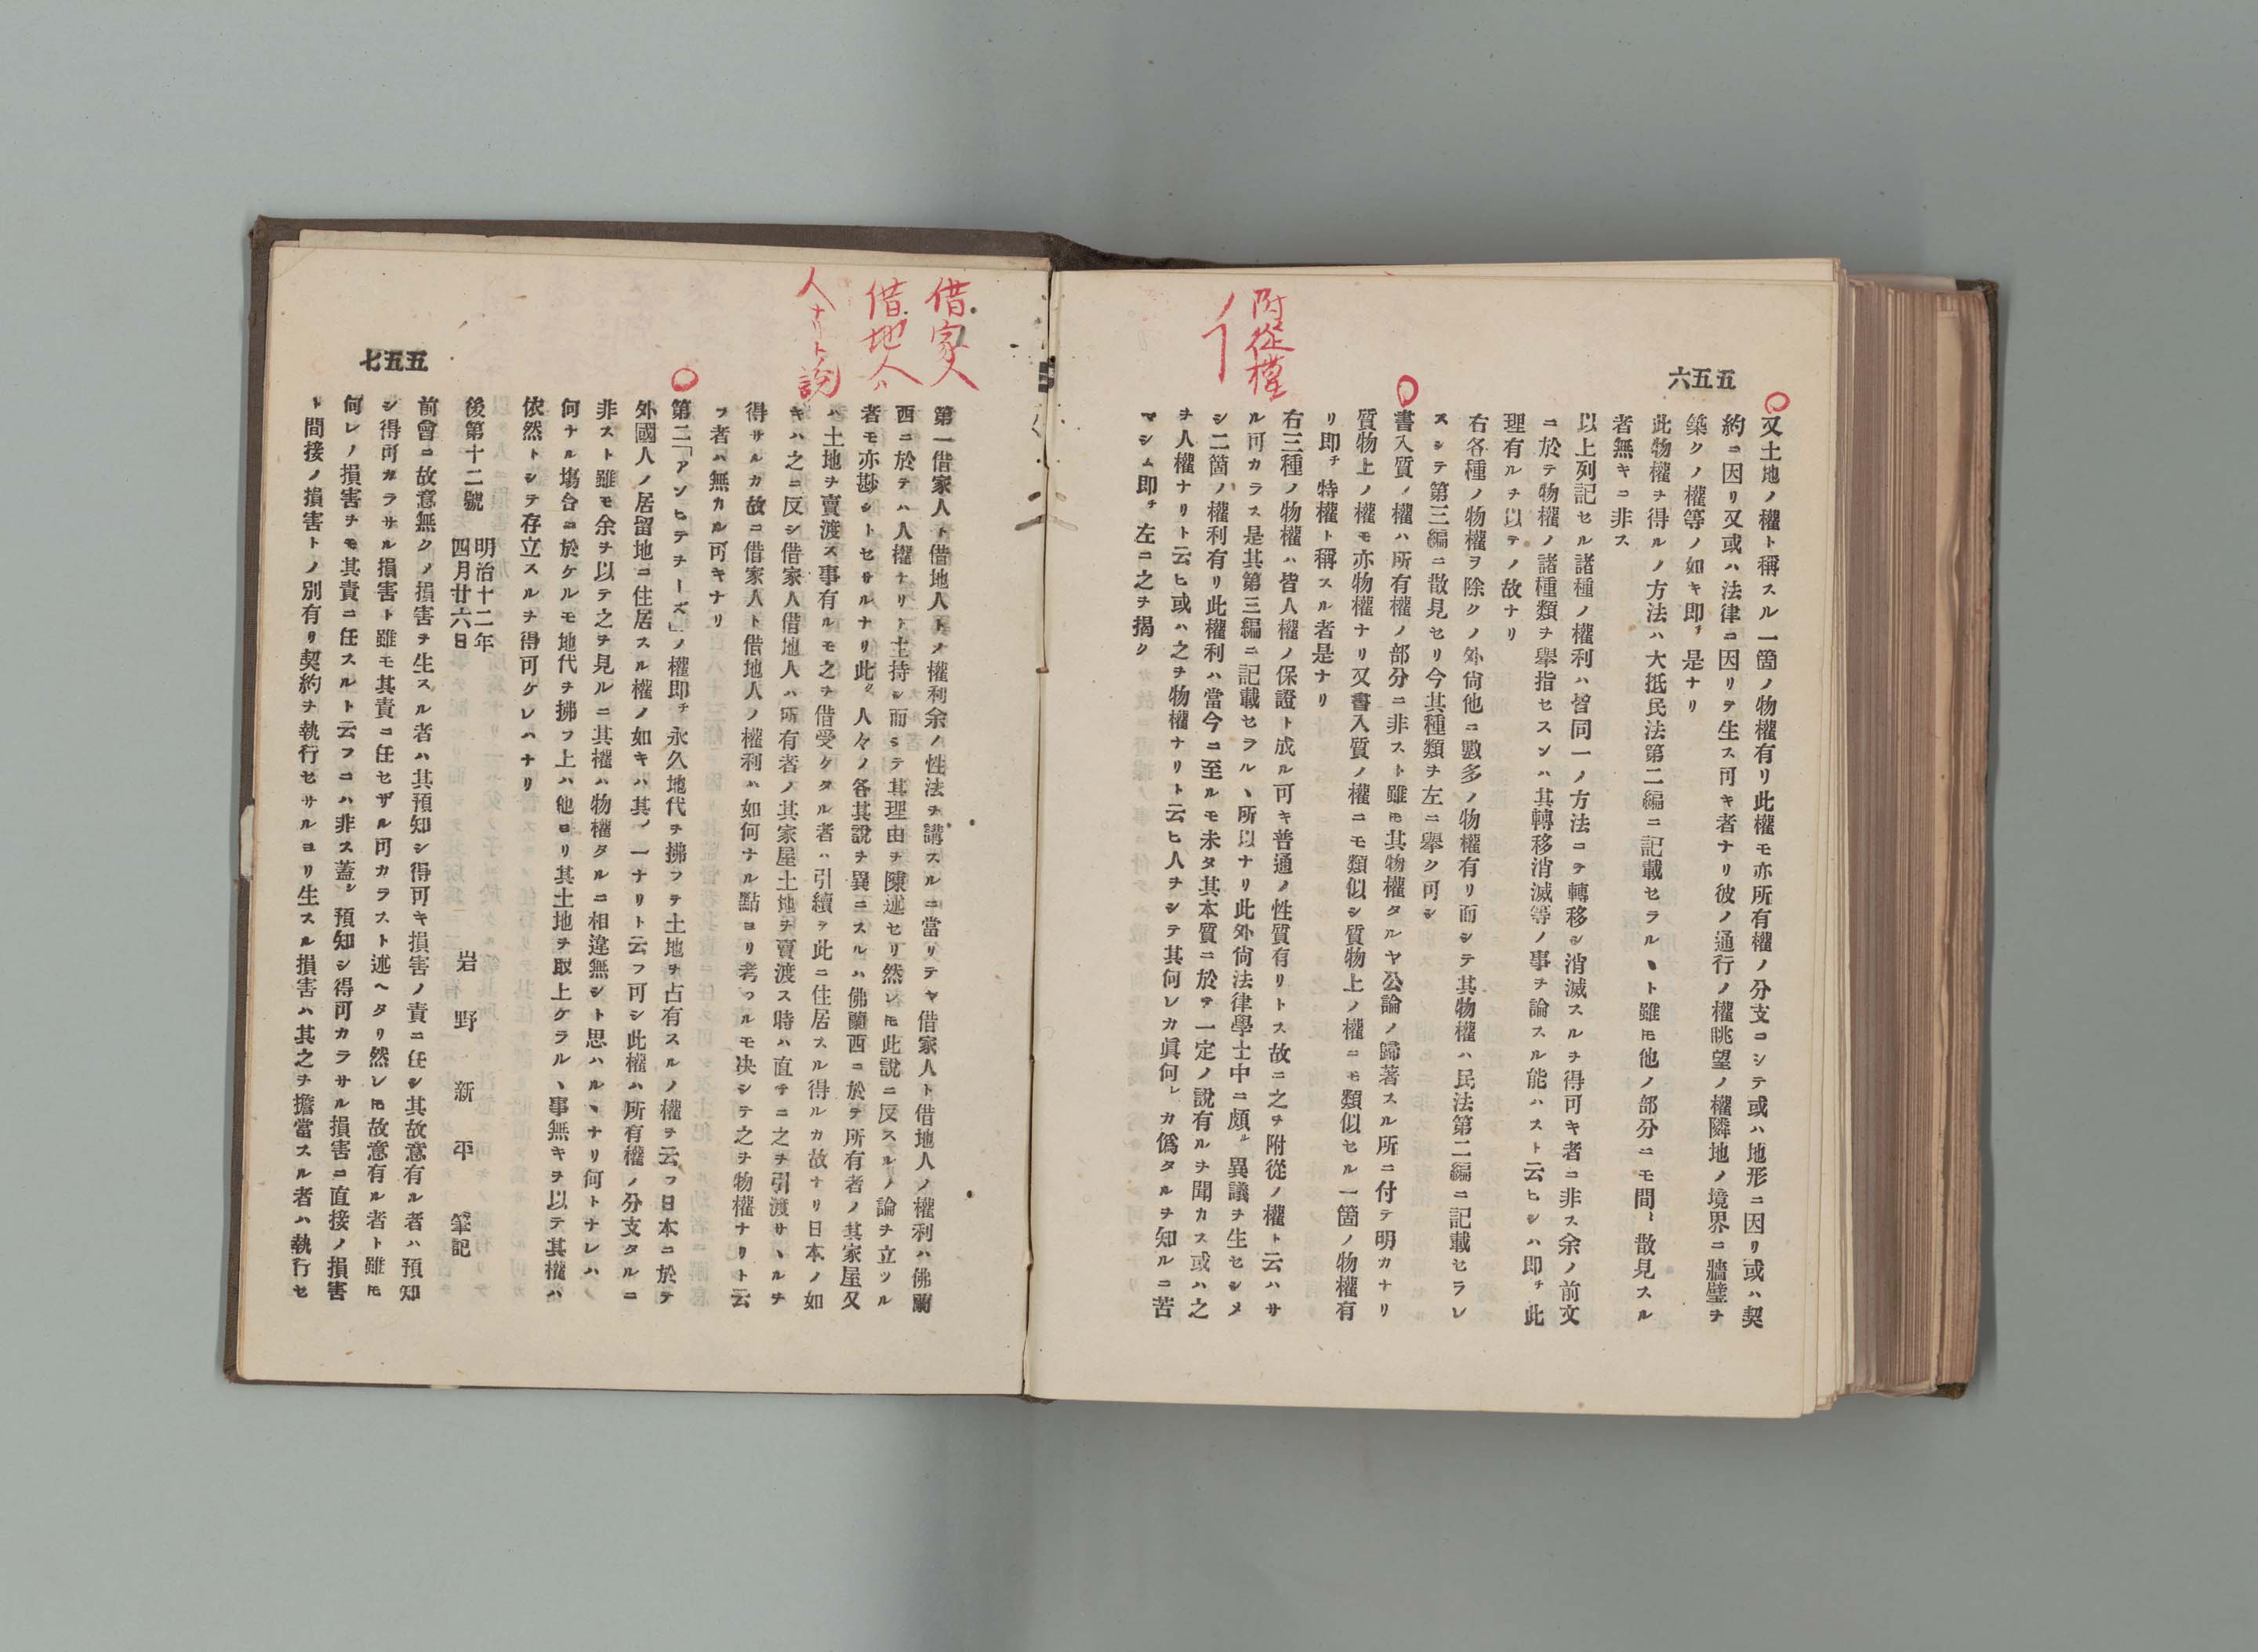 六五五
附從權
又土地ノ權ト稱スル一箇ノ物權有リ此權モ亦所有權ノ分支ニシテ或ハ地形ニ因リ或ハ契
約ニ因リ又或ハ法律ニ因リテ生ス可キ者ナリ彼ノ通行ノ權眺望ノ權隣地ノ境界ニ牆壁ヲ
築クノ權等ノ如キ即チ是ナリ
此物權ヲ得ルノ方法ハ大抵民法第二編ニ記載セラルヽト雖𪜈他ノ部分ニモ間〻散見スル
者無キニ非ス
以上列記セル諸種ノ權利ハ皆同一ノ方法ニテ轉移シ消滅スルヲ得可キ者ニ非ス余ノ前文
ニ於テ物權ノ諸種類ヲ擧指セスンハ其轉移消滅等ノ事ヲ論スル能ハスト云ヒシハ即チ此
理有ルヲ以テノ故ナリ
右各種ノ物權ヲ除クノ外尙他ニ數多ノ物權有リ而シテ其物權ハ民法第二編ニ記載セラレ
スシテ第三編ニ散見セリ今其種類ヲ左ニ擧ク可シ
書入質ノ權ハ所有權ノ部分ニ非スト雖𪜈其物權タルヤ公論ノ歸著スル所ニ付テ明カナリ
質物上ノ權モ亦物權ナリ又書入質ノ權ニモ類似シ質物上ノ權ニモ類似セル一箇ノ物權有
リ即チ特權ト稱スル者是ナリ
右三種ノ物權ハ皆人權ノ保證ト成ル可キ普通ノ性質有リトス故ニ之ヲ附從ノ權ト云ハサ
ル可カラス是其第三編ニ記載セラルヽ所以ナリ此外尙法律學士中ニ頗ル異議ヲ生セシメ
シ二箇ノ權利有リ此權利ハ當今ニ至ルモ未タ其本質ニ於テ一定ノ說有ルヲ聞カス或ハ之
ヲ人權ナリト云ヒ或ハ之ヲ物權ナリト云ヒ人ヲシテ其何レカ眞何レカ僞タルヲ知ルニ苦
マシム即チ左ニ之ヲ揭ク
借家人
借地人ハ
人ナリト說
第一借家人ト借地人トノ權利余ノ性法ヲ講スルニ當リテヤ借家人ト借地人ノ權利ハ佛蘭
西ニ於テハ人權ナリト主持シ而シテ其理由ヲ陳述セリ然レ𪜈此說ニ反スルノ論ヲ立ツル
者モ亦尠シトセサルナリ此ク人々ノ各其說ヲ異ニスルハ佛蘭西ニ於テ所有者ノ其家屋又
ハ土地ヲ賣渡ス事有ルモ之ヲ借受ケタル者ハ引續ヲ此ニ住居スル得ルカ故ナリ日本ノ如
キハ之ニ反シ借家人借地人ハ所有者ノ其家屋土地ヲ賣渡ス時ハ直チニ之ヲ引渡サヽルヲ
得サルカ故ニ借家人ト借地人ノ權利ハ如何ナル點ヨリ考フルモ决シテ之ヲ物權ナリト云
フ者ハ無カル可キナリ
第二「アンヒテヲーズ」ノ權即チ永久地代ヲ拂フテ土地ヲ占有スルノ權ヲ云フ日本ニ於テ
外國人ノ居留地ニ住居スル權ノ如キハ其ノ一ナリト云フ可シ此權ハ所有權ノ分支タルニ
非スト雖モ余ヲ以テ之ヲ見ルニ其權ハ物權タルニ相違無シト思ハルヽナリ何トナレハ
何ナル塲合ニ於ケルモ地代ヲ拂フ上ハ他ヨリ其土地ヲ取上ケラルヽ事無キヲ以テ其權ハ
依然トシテ存立スルヲ得可ケレハナリ
後第十二號 明治十二年四月廿六日 岩野新平 筆記
前會ニ故意無クノ損害ヲ生スル者ハ其預知シ得可キ損害ノ責ニ任シ其故意有ル者ハ預知
シ得可カラサル損害ト雖モ其責ニ任セザル可カラスト述ヘタリ然レ𪜈故意有ル者ト雖𪜈
何レノ損害ヲモ其責ニ任スルト云フニハ非ス蓋シ預知シ得可カラサル損害ニ直接ノ損害
ト間接ノ損害トノ別有リ契約ヲ執行セサルヨリ生スル損害ハ其之ヲ擔當スル者ハ執行セ
七五五